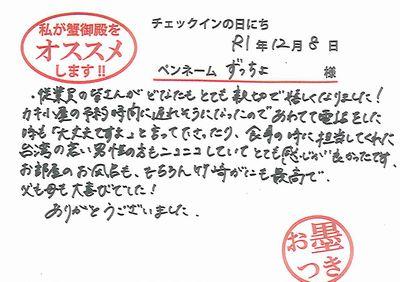 私が蟹御殿を
オススメ
します!!
チェックインの日にち
R1年12月8日
ペンネーム ずっちょ 様
・従業員の皆さんがどなたもとても親切で嬉しくなりました!
カキ小屋の予約時間に遅れそうになったのであわてて電話をした
時も「大丈夫ですよ」と言って下さったり、食事の時に担当してくれた
台湾の若い男性の方もニコニコしていてとても感じが良かったです。
お部屋のお風呂も、もちろん竹崎がにも最高で、
父も母も大喜びでした!
ありがとうございました。
お墨
つき